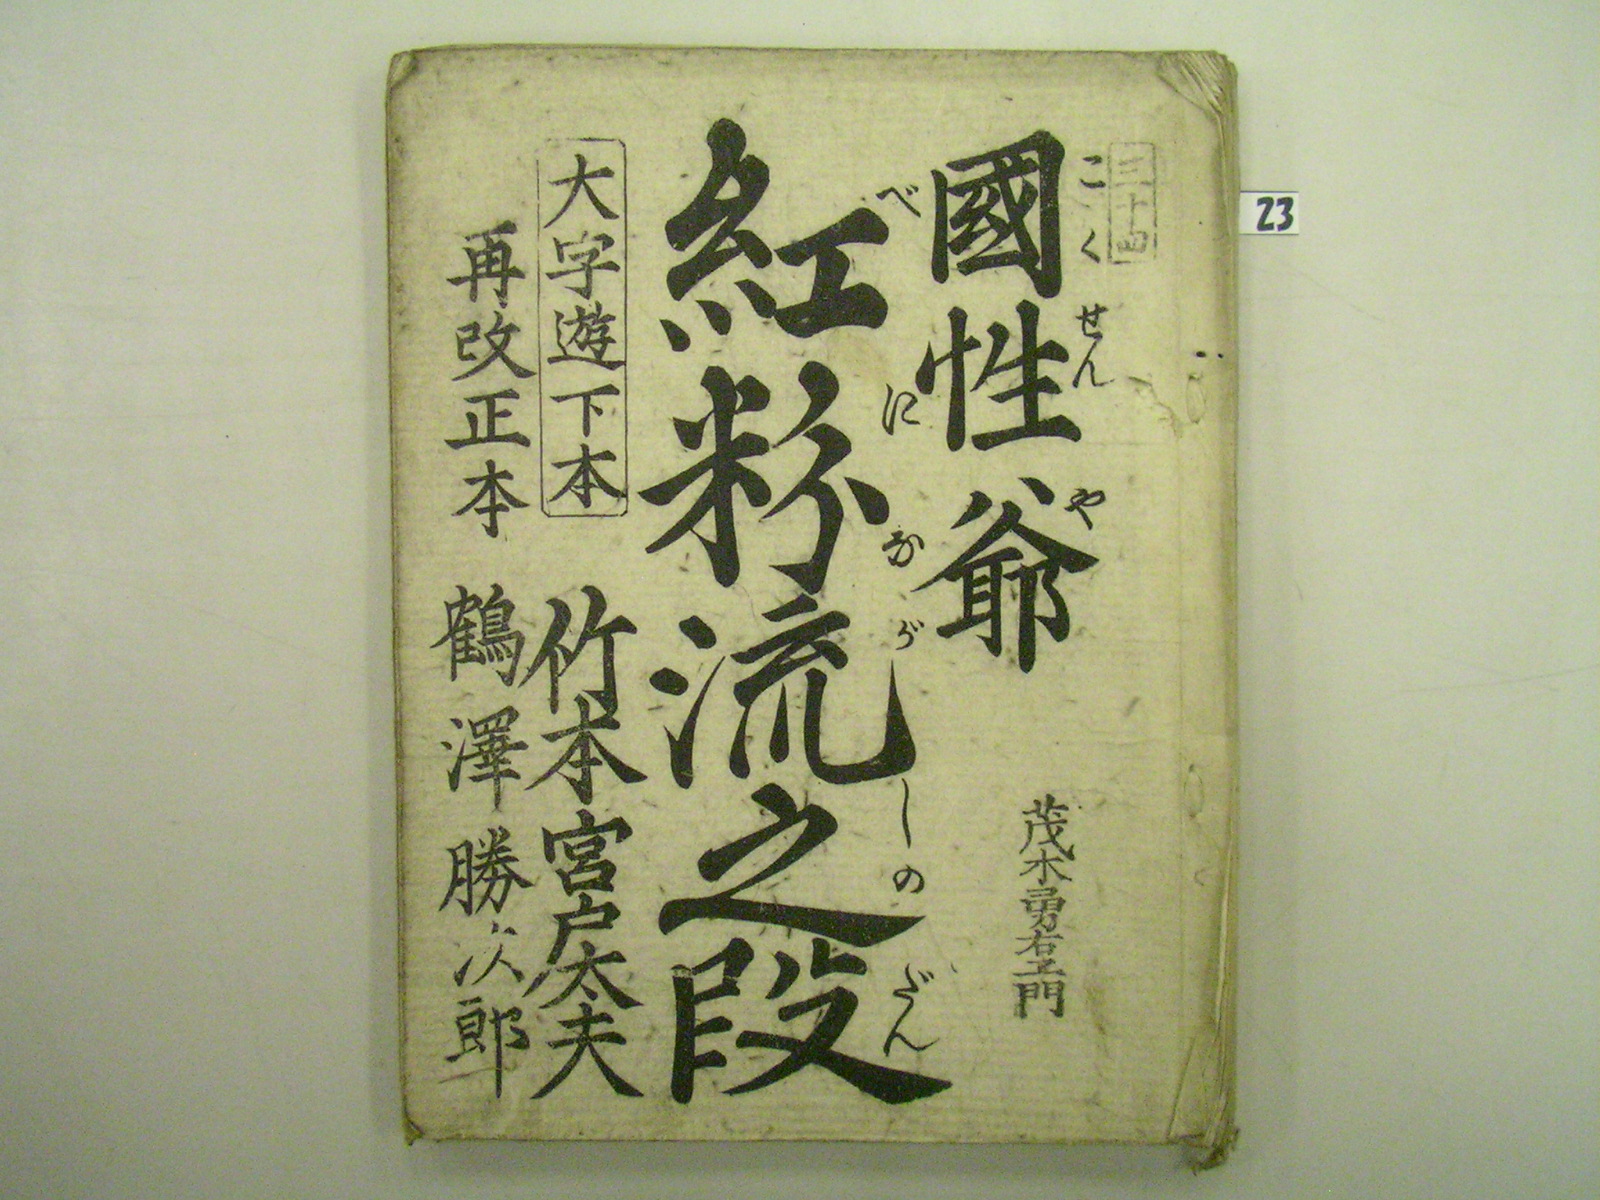 三十四
こくせんや
國性爺
茂木勇右エ門
べにながしのだん
紅粉流之段
大字遊下本
竹本宮戸太夫
再改正本
鶴澤勝次郎
23